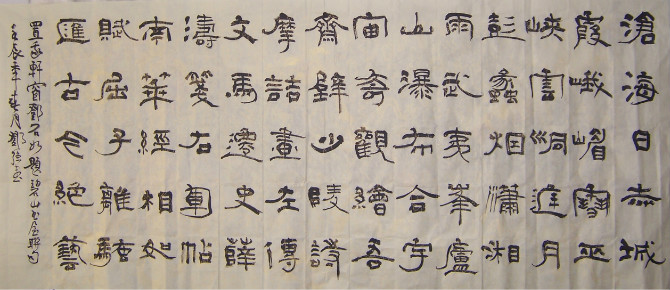 滄海日赤城
霞峨嵋雪巫
峽雲洞庭月
彭蠡烟瀟湘
雨武夷峯廬
山瀑布合宇
宙奇觀繪吾
齋壁少陵詩
摩詰畫左傳
文馬遷史薛
濤箋右軍帖
南華經相如
賦屈子離騷
匯古今絕藝
置我軒窗鄧石如題碧山書屋聯句
壬辰年春月鄧